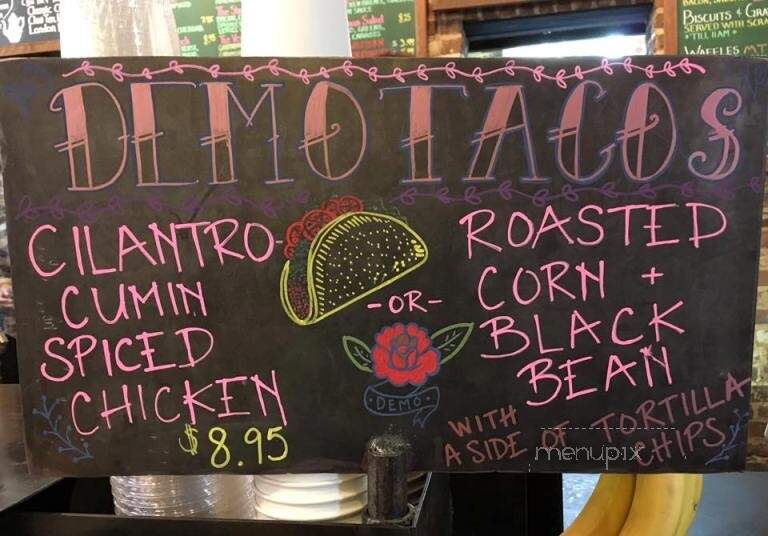 DEMO TACOS
CILANTRO-
CUMIN
SPICED
CHICKEN
$8.95
-OR-
DEMO
ROASTED
CORN +
BLACK
BEAN
WITH
A SIDE OF TORTILLA
CHIPS
menupix
BISCUITS + GRA
SERVED WITH SCRA
'TILL 11AM
WAFFLES MT